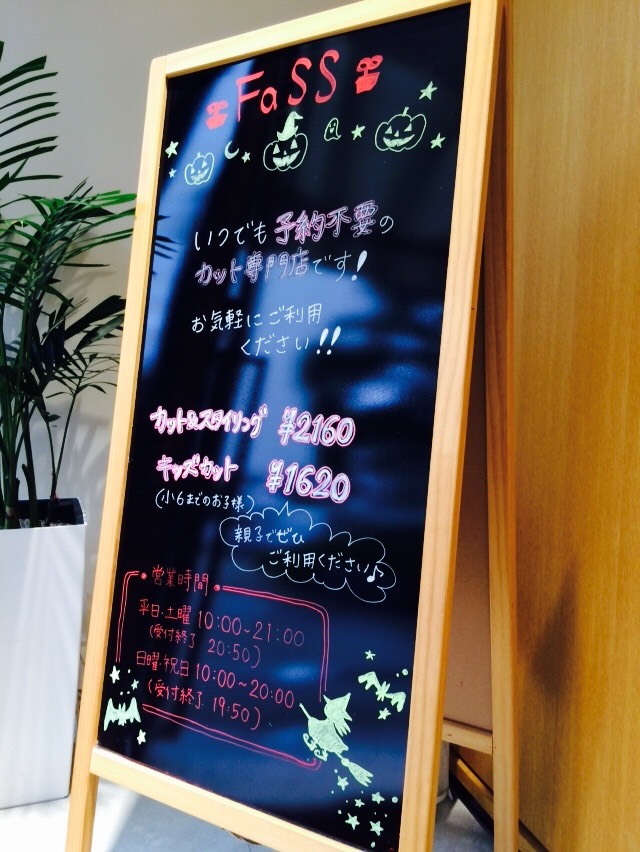 FaSS
いつでも予約不要の
カット専門店です!
お気軽にご利用
ください!!
カット&スタイリング ¥2160
キッズカット ¥1620
(小6までのお子様)
親子でぜひ
ご利用ください♪
営業時間
平日・土曜 10:00~21:00
(受付終了 20:50)
日曜・祝日 10:00~20:00
(受付終了 19:50)